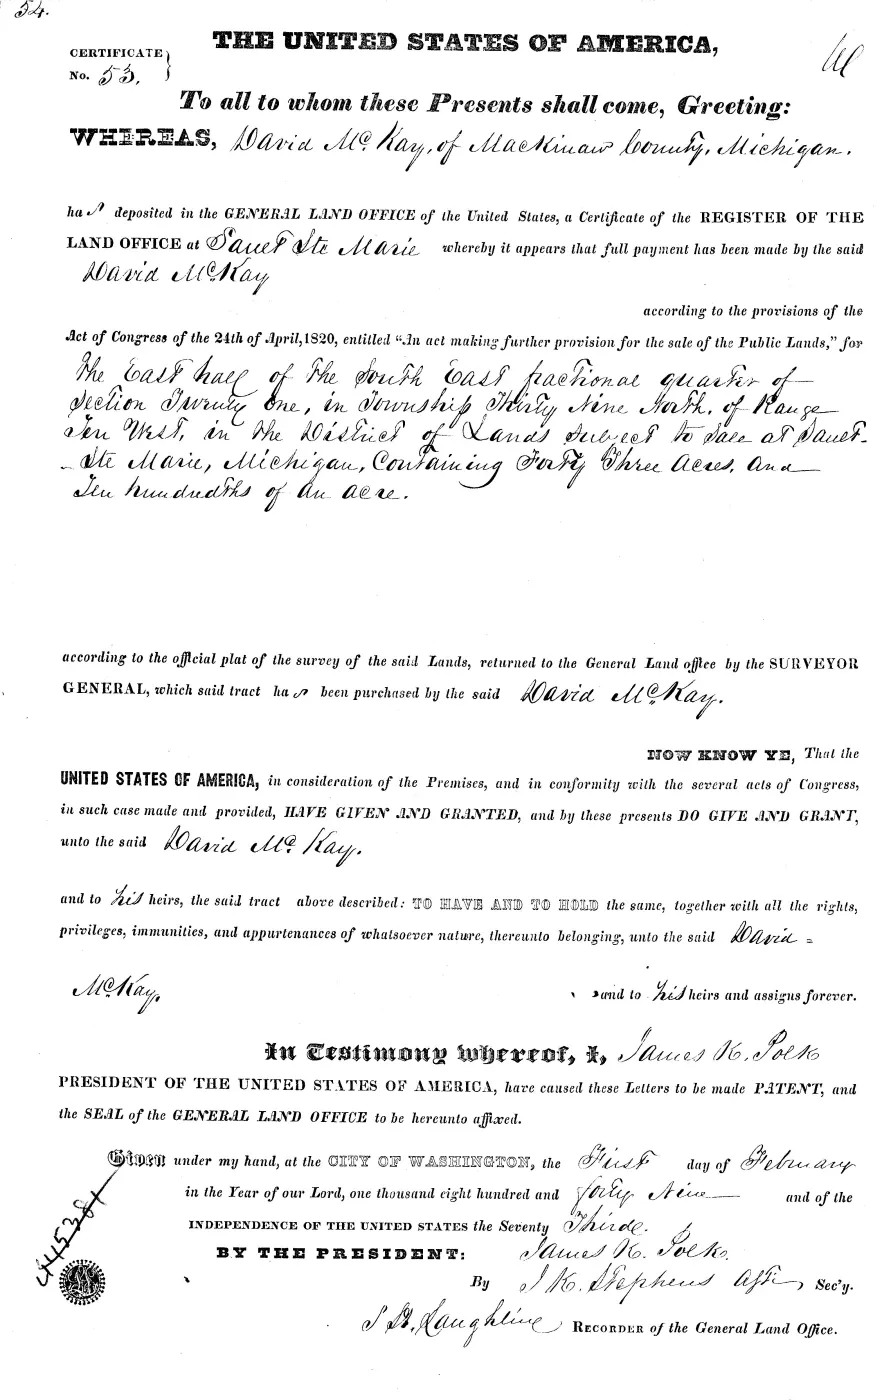 54.
THE UNITED STATES OF AMERICA,
CERTIFICATE
No. 53.
To all to whom these Presents shall come, Greeting:
WHEREAS, David McKay, of Mackinaw County, Michigan.
has deposited in the GENERAL LAND OFFICE of the United States, a Certificate of the REGISTER OF THE
LAND OFFICE at Sault Ste Marie whereby it appears that full payment has been made by the said
David McKay
according to the provisions of the
Act of Congress of the 24th of April, 1820, entitled "An act making further provision for the sale of the Public Lands," for
the East half of the South East fractional quarter of
Section Twenty one, in Township Thirty Nine North, of Range
Ten West, in the District of Lands Subject to Sale at Sault
Ste Marie, Michigan, Containing Forty Three Acres, and
Ten hundredths of an acre.
according to the official plat of the survey of the said Lands, returned to the General Land office by the SURVEYOR
GENERAL, which said tract has been purchased by the said David McKay.
NOW KNOW YE, That the
UNITED STATES OF AMERICA, in consideration of the Premises, and in conformity with the several acts of Congress,
in such case made and provided, HAVE GIVEN AND GRANTED, and by these presents DO GIVE AND GRANT,
unto the said David McKay.
and to his heirs, the said tract above described: TO HAVE AND TO HOLD the same, together with all the rights,
privileges, immunities, and appurtenances of whatsoever nature, thereunto belonging, unto the said David =
McKay, and to his heirs and assigns forever.
In Testimony whereof, I, James K. Polk
PRESIDENT OF THE UNITED STATES OF AMERICA, have caused these Letters to be made PATENT, and
the SEAL of the GENERAL LAND OFFICE to be hereunto affixed.
Given under my hand, at the CITY OF WASHINGTON, the First day of February
in the Year of our Lord, one thousand eight hundred and forty Nine and of the
INDEPENDENCE OF THE UNITED STATES the Seventy Third.
BY THE PRESIDENT: James K. Polk.
By J. K. Stephens Sec'y.
S. H. Laughline RECORDER of the General Land Office.
445384